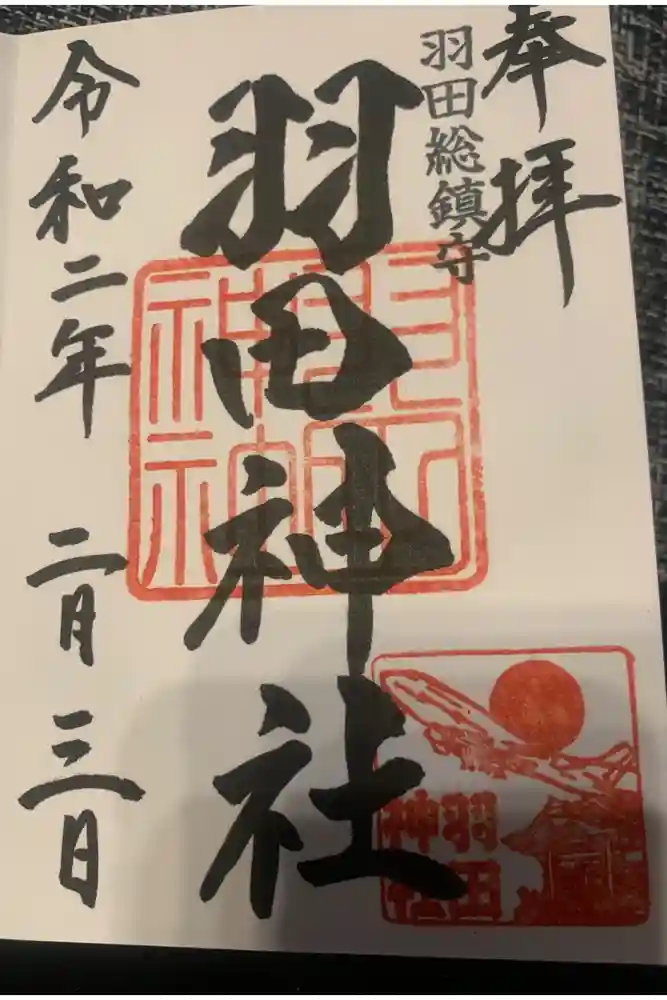 奉拝
羽田総鎮守
羽田神社
令和二年 二月 三日
羽田
神社